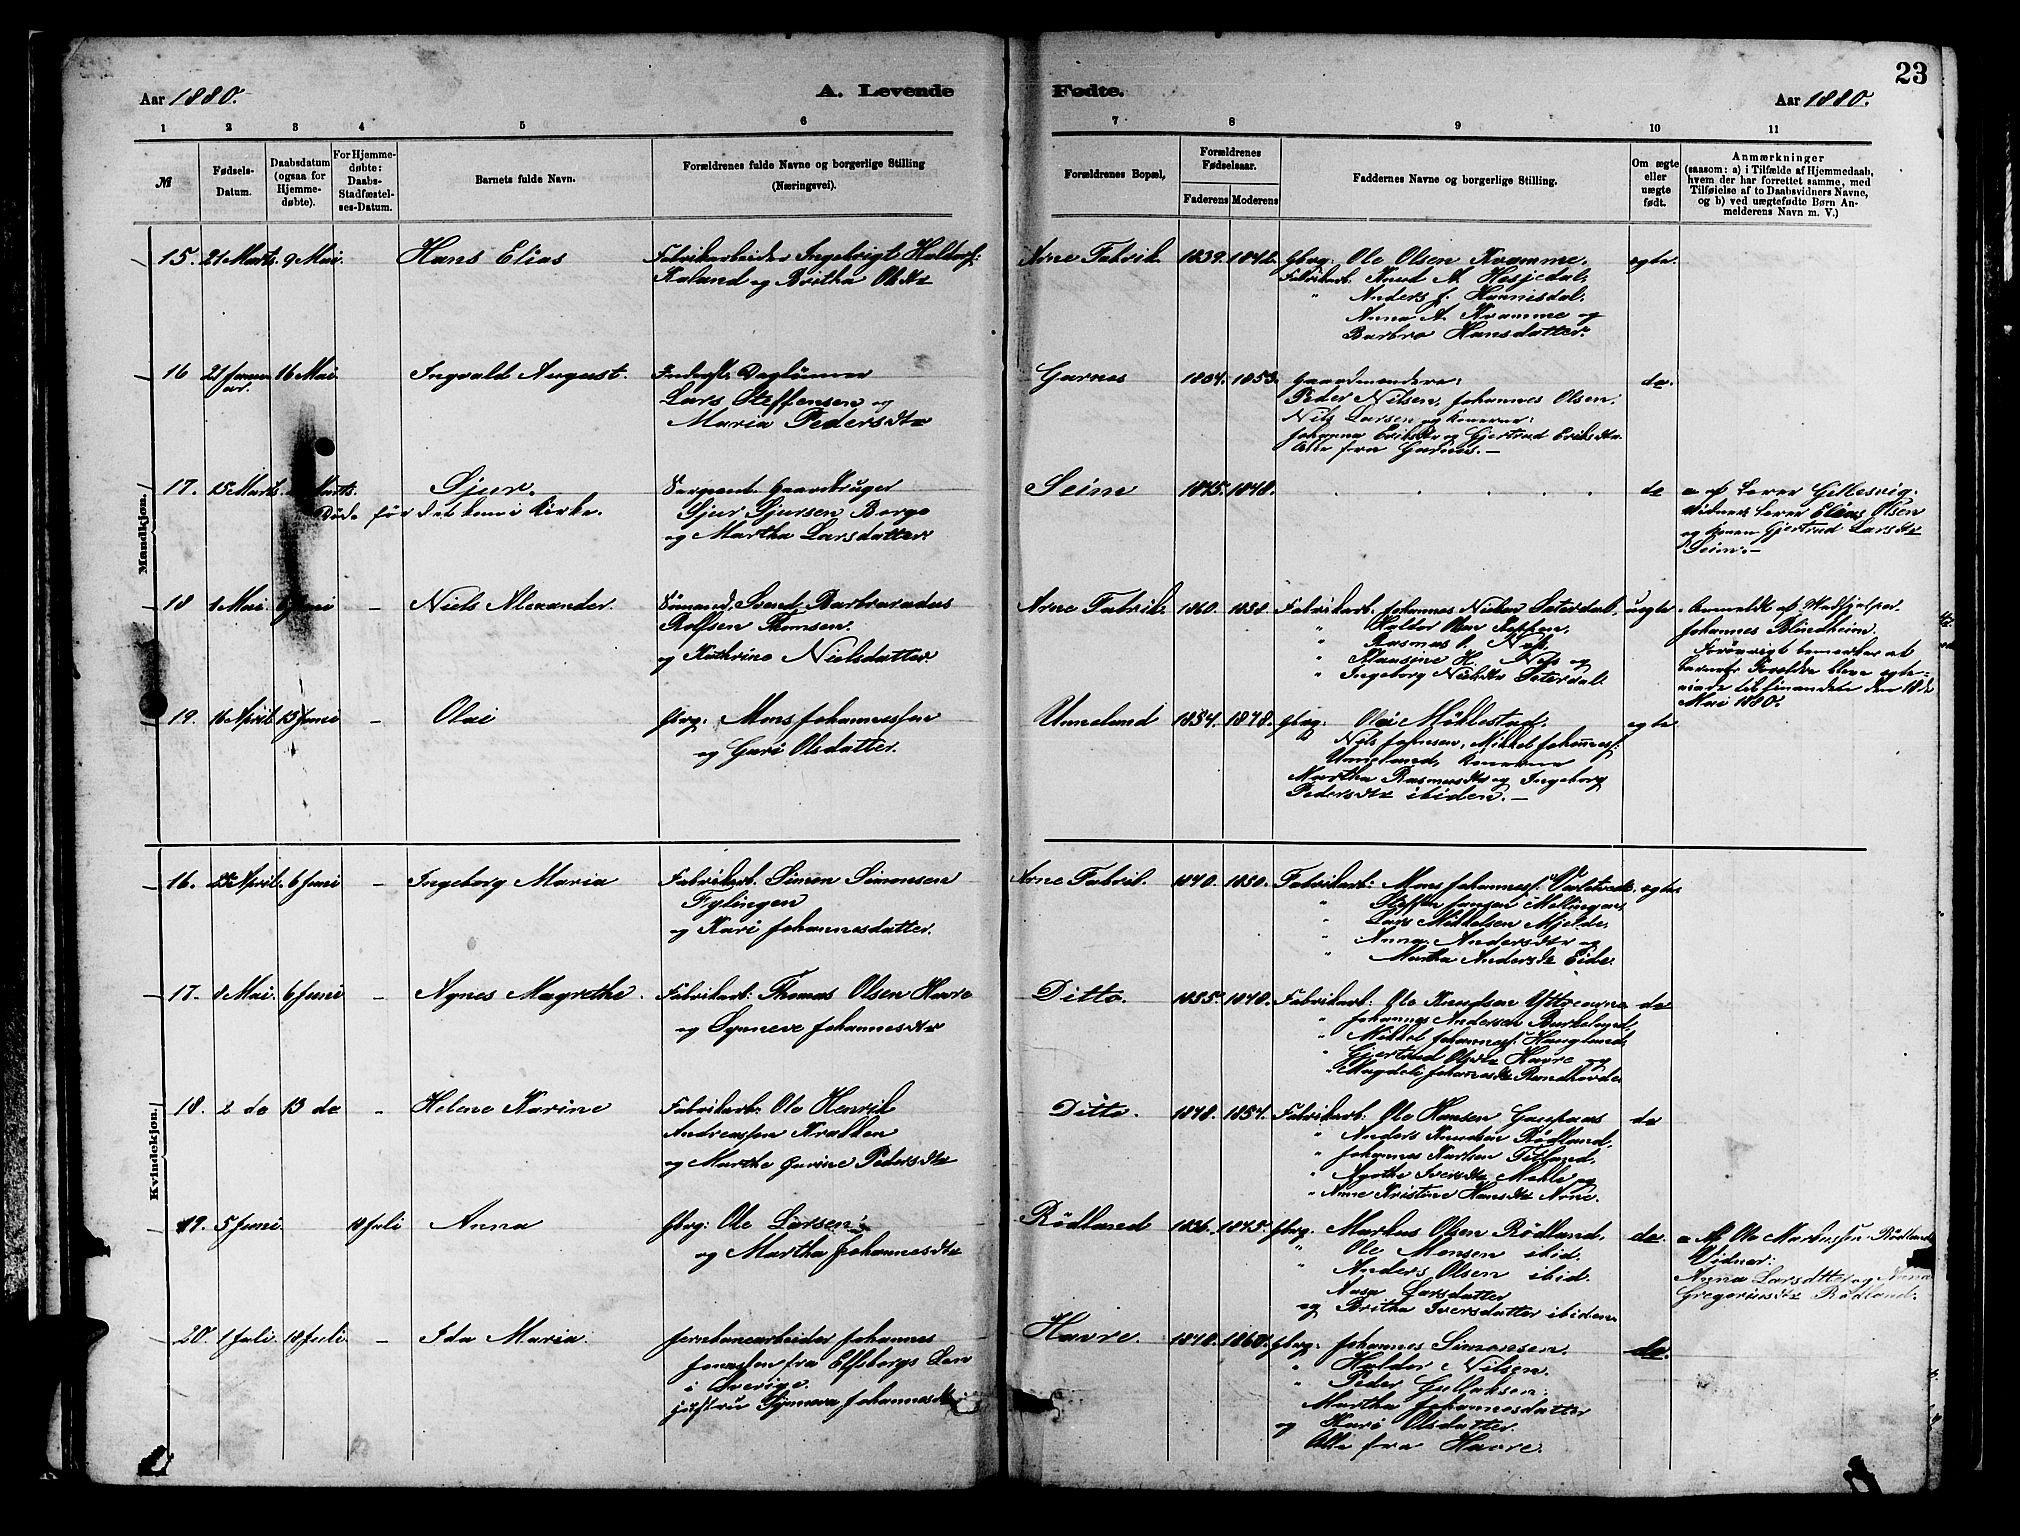 23
Aar 1880.
A. Levende
Fødte.
Aar 1880.
1 2 3 4 5 6 7 8 9 10 11
№
Fødsels-
Datum.
Daabsdatum
(ogsaa for
Hjemme-
døbte).
For Hjemme-
døbte:
Daabs-
Stadfæstel-
ses-Datum.
Barnets fulde Navn.
Forældrenes fulde Navne og borgerlige Stilling
(Næringsvei).
Forældrenes Bopæl,
Forældrenes
Fødselsaar.
Faderens
Moderens
Faddernes Navne og borgerlige Stilling.
Om ægte
eller
uægte
født.
Anmærkninger
(saasom: a) i Tilfælde af Hjemmedaab,
hvem der har forrettet samme, med
Tilføielse af to Daabsvidners Navne,
og b) ved uægtefødte Børn An-
melderens Navn m. V.)
Mandkjøn.
15. 21 Marts. 9 Mai. Hans Elias
Fabrikarbeider Ingebrigt Haldorsf:
Kaland og Britha Olsdtr
Arne Fabrik 1839.
Gbrg. Ole Olsen Kvamme,
Fabrikarb. Knud A. Hesjedal,
" Anders J. Hannisdal,
Anna A. Kvamme og
Barbro Hansdatter.
egte
16 21 Januar. 16 Mai Ingvald August.
Inderst, Daglønner
Lars Steffensen og
Maria Pedersdtr
Garnes 1853.
Gaardmændene:
Peder Nilsen, Johannes Olsen,
Nils Larsen og Konerne:
Johanna Eriksdtr og Gjertrud Eriksdtr
Alle fra Garnes.—
do.
17. 15 Marts. Marts. Sjur.
Døde før det kom i Kirke.
Sergeant. Gaardbruger
Sjur Sjursen Borge
og Martha Larsdatter.
Seim 1845. 1848.
do
a. af Lærer Gillesvig.
Vidner: Lærer Elias Olsen
og Konen Gjertrud Larsdtr
Seim.—
18 1 Mai. 6 Juni - Niels Alexander.
Sømand, Svend Barbvaradus
Rolfsen Thomsen.
og Kathrine Nielsdatter.
Arne Fabrik 1860. 1858.
Fabrikarb. Johannes Nielsen Sæterdal,
" Haldor Olsen
" Rasmus
" Klausine H. og
" Ingeborg Nielsdtr Sæterdal.
uegte
Anmeldt af Medhjælper
Johannes Blindheim.
Forøvrigt bemærkes at
barnets Forældre bleve egte-
viede tilfinandete den 18de
Mai 1880.
19. 16 April 13 Juni - Olai
Gbrg: Mons Johannessen
og Guri Olsdatter.
Unneland 1854. 1848.
Gbrg: Olai Mjeldestad,
Nils Johnsen, Mikkel Johannesf.
Unneland, Konerne
Martha Rasmusdtr og Ingeborg
Pedersdtr ibiden.—
egte
Kvindekjøn.
16. 25 April. 6 Juni - Ingeborg Maria
Fabrikarb. Simon Simonsen
Fylingen
og Kari Johannesdatter.
Arne Fabrik. 1840. 1850.
Fabrikarb: Mons Johannesf:
" Steffen Jansen
" Lars Mikkelsen Mjelde,
" Anna Andersdtr og
" Martha Andersdtr Eide.
egte
17. 8 Mai. 6 Juni - Agnes Magrethe.
Fabrikarb: Thomas Olsen Havre
og Synneve Johannesdtr
Ditto. 1855. 1848.
Fabrikarb: Ole Knudsen
" Johannes Andersen Birkeland,
" Mikkel Johannesf: Haugland,
" Gjertrud Olsdtr Havre og
" Magdeli Johannesdtr Randhovde
do
18. 2 do 13 do - Helene Karine
Fabrikarb. Ole Henrik
Andreassen Krakken
og Marthe Gurine Pedersdtr
Ditto. 1848. 1854.
Fabrikarb: Ole Hansen
" Anders Knudsen Rødland,
" Johannes Karlsen Titland,
" Agothe Iversdtr Mehle og
" Anne Kristine Hansdtr Arne.
do
19. 5 Juni. 18 Juli Anna
Gbrg: Ole Larsen
og Martha Johannesdtr
Rødland 1836. 1845.
Gbrg. Markus Olsen Rødland,
" Ole Monsen ibid.
" Anders Olsen ibid.
Aasa Larsdatter
og Britha Iversdatter ibidem
do.
a. Af Ole Markussen Rødland
Vidner:
Anna Larsdtter og Anna
Gregoriusdtr Rødland.
20. 1 Juli. 18 Juli. - Ida Maria.
Jernbanearbeider Johannes
Jonassen fra Elfsborgs Len
i Sverige.
Hustru Synneva Johannesdtr
Havre. 1848. 1860.
Gbrg: Johannes Simonsen.
" Haldor Nilsen.
" Peder Gullaksen.
Martha Johannesdatter
og Kari Olsdatter.
Alle fra Havre.
do.